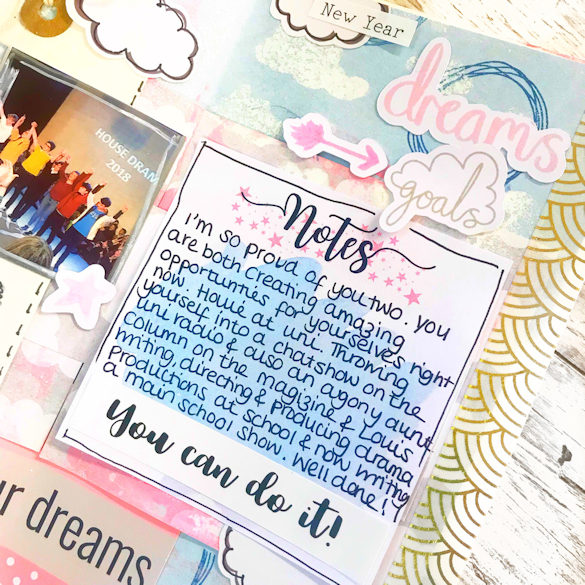 New Year
dreams
goals
HOUSE DRAM
2018
Notes
I'm so proud of you two. You
are both creating amazing
opportunties for yourselves right
now. House at uni. Throwing
yourself into a chatshow on the
uni radio & also an agony aunt
column on the magizine & Louis
writing, directing & producing drama
productions at school & now writing
a main school show. Well done!
You can do it!
ur dreams